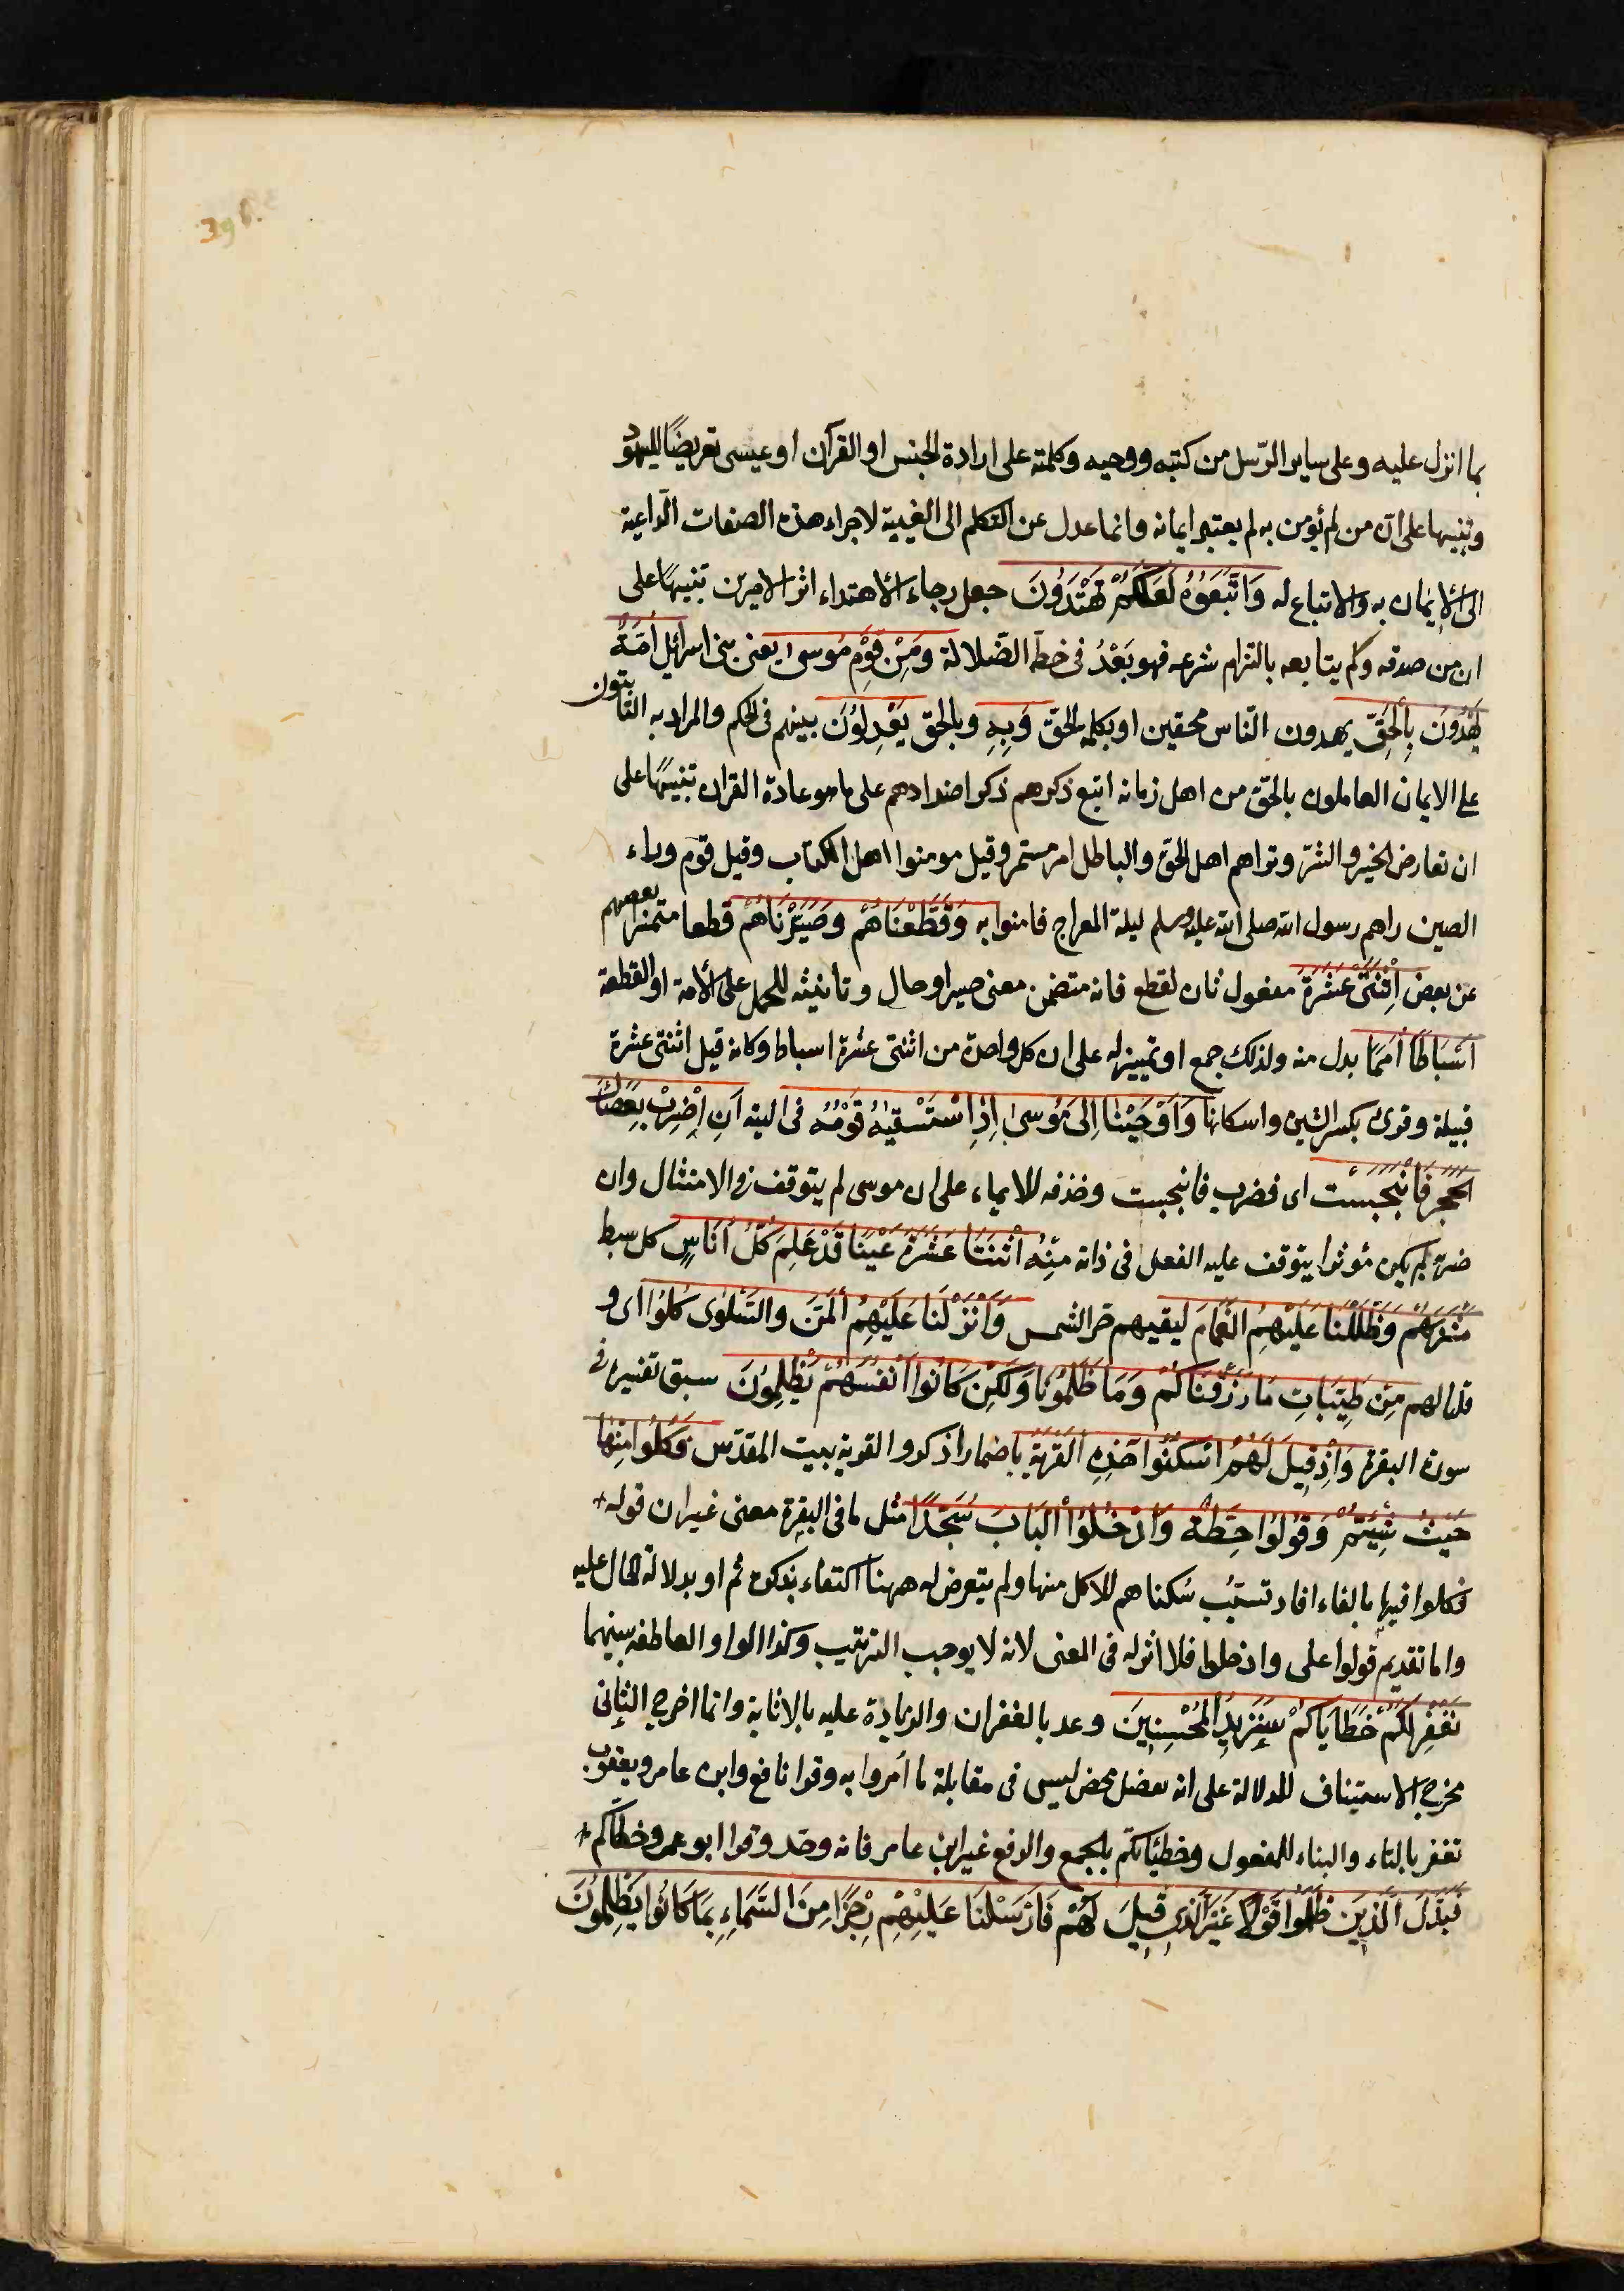 .396
بما انزل عليه وعلى ساير الرّسل من كتبه ووحيه وكلمته على ارادة الجنس او القرآن او عيسى تعريضًا لليهود
وتنبيها على ان من لم يؤمن به لم يعتبر ايمانه وانما عدل عن التكلم الى الغيبة لاجراء هذه الصفات الّداعية
الى الإيمان به والاتباع له وَاتَّبَعُوُهُ لَعَلَّكُمْ تَهْتَدَوُنَ جعل رجاء الأهتداء اثر الامرين تنبيهًا على
ان من صدقه ولم يتابعه بالتزام شرعه فهو بَعْدُ فى خطّ الضّلالة ومَِنْ قَوْمِ مَوُسىٰ يعنى بنى اسرائيل اُمَّةٌ
يَهْدُونَ بِالْحَقِّ يهدون النّاس محقين او بكلمة الحقّ وَبِهِ وبالحقّ يَعْدِلوُنَ بينهم فى الحكم والمراد به الثّابتون
على الايمان العاملون بالحقّ من اهل زمانه اتبع ذكرهم ذكر اضدادهم على ما هو عادة القران تنبيهًا على
ان تعارض الخير والشرّ وتزاحم اهل الحقّ والباطل امر مستمر وقيل مومنوا اهل الكتاب وقيل قوم وراء
الصين راهم رسول الله صلى الله عليه وسلم ليلة المعراج فامنوا به وَقَطَّعْنَاهُمْ وصَيَّرْنَاهُمْ قطعا متميزا بعضهم
عن بعض اِثْنَتَىْ عَشْرَةَ مفعول ثان لقطع فانه متضمن معنى صير او حال وتانيثه للحمل على الأمة او القطعة
اَسْبَاطًا اُمَمًا بدل منه ولذلك جمع او تمييز له على ان كل واحدة من اثنتى عشرة اسباط وكانه قيل اثنتى عشرة
قبيلة وقرئ بكسر الشين واسكانها وَاَوْحَيْنٰا اِلىٰ مَوُسىٰ اِذِ اسْتَسْقيٰهُ قَوْمُهُ فى التيه اَنِ اِضْرِبْ بِعَصَاكَ
الْحَجَرَ فَانْبَجَسَتْ اى فضرب فانبجست وحذفه للايماء على ان موسى لم يتوقف فى الامتثال وان
ضربه لم يكن مؤثرا يتوقف عليه الفعل فى ذاته مِنْهُ اثْنَتَا عَشْرَةَ عَيْنًا قَدْ عَلِمَ كُلُّ اُنَاسٍ كل سبط
مَشْرَبَهُمْ وَظَلَّلْنَا عَلَيْهِمُ الْغَمَامَ ليقيهم حرّ الشمس وَاَنْزَلْنَا عَلَيْهِمُ الْمَنَّ والسَّلْوٰى كُلوُا اى و
قلنا لهم مِنْ طَيِّبَاتِ مَا رَزَقْنَاكُمْ وَمَا ظَلَمُونَا وَلكِنْ كَانُوا اَنْفُسَهُمْ يَظْلِمُونَ سبق تفسيره فى
سورة البقرة وَاِذْ قِيلَ لَهُمُ اسْكُنُوا هٰذِهِ الْقَرْيَةَ باضمار اذكر والقرية بيت المقدّس فكُلُوا مِنْهَا
حَيْثُ شِئْتُمْ وَقُولوُا حِطَّةٌ وَادْخُلوُا الْبَابَ سُجَّدًا مثل ما فى البقرة معنى غير ان قوله
فكلوا فيها بالفاء افاد تسبّب سُكناهم للاكل منها ولم يتعرض له ههنا اكتفاء بذكره ثم او بدلالة الحال عليه
واما تقديم قولوا على وادخلوا فلا اثر له فى المعنى لانه لا يوجب الترتيب وكذا الواو العاطفة بينهما
نَغْفِرْ لَكُمْ خَطَايَاكُمْ سَنَزِيدُ الْمُحْسِنِينَ وعد بالغفران والزيادة عليه بالاثابة وانما اخرج الثانى
مخرج الاستيناف للدلالة على انه تفضل محض ليس فى مقابلة ما اُمروا به وقرا نافع وابن عامر ويعقوب
تغفر بالتاء والبناء للمفعول وخطيئاتكم بالجمع والرفع غير ابن عامر فانه وحّد وقرا ابو عمرو خطاياكم
فَبَدَّلَ الَّذِينَ ظَلَمُوا قَوْلاً غَيْرَ الَّذِى قِيلَ لَهُمْ فَاَرْسَلْنَا عَلَيْهِمْ رِجْزًا مِنَ السَّمَاءِ بِمَا كَانُوا يَظْلِمُونَ